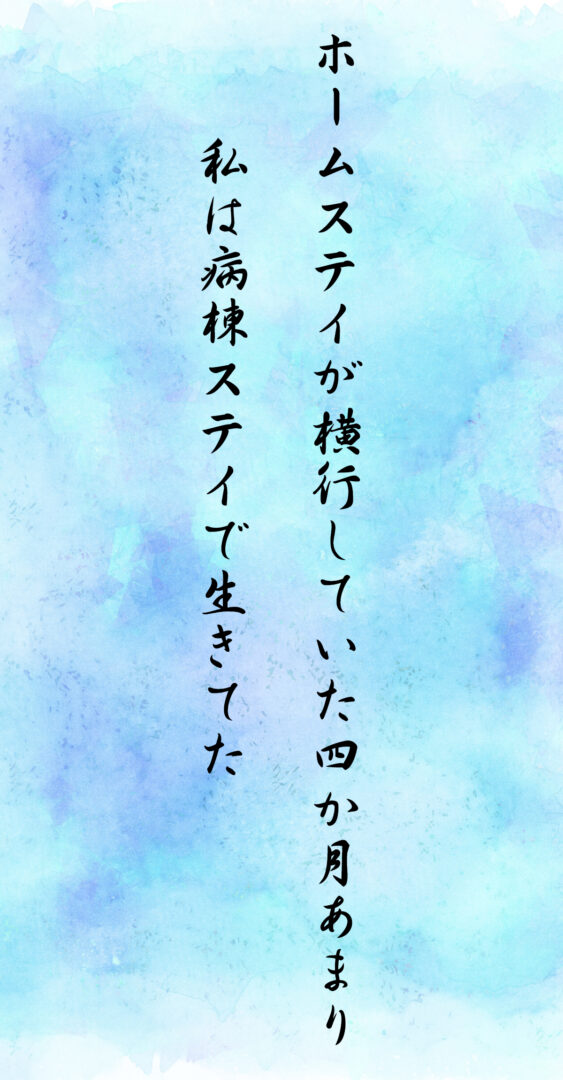 ホームステイが横行していた四か月あまり
私は病棟ステイで生きてた